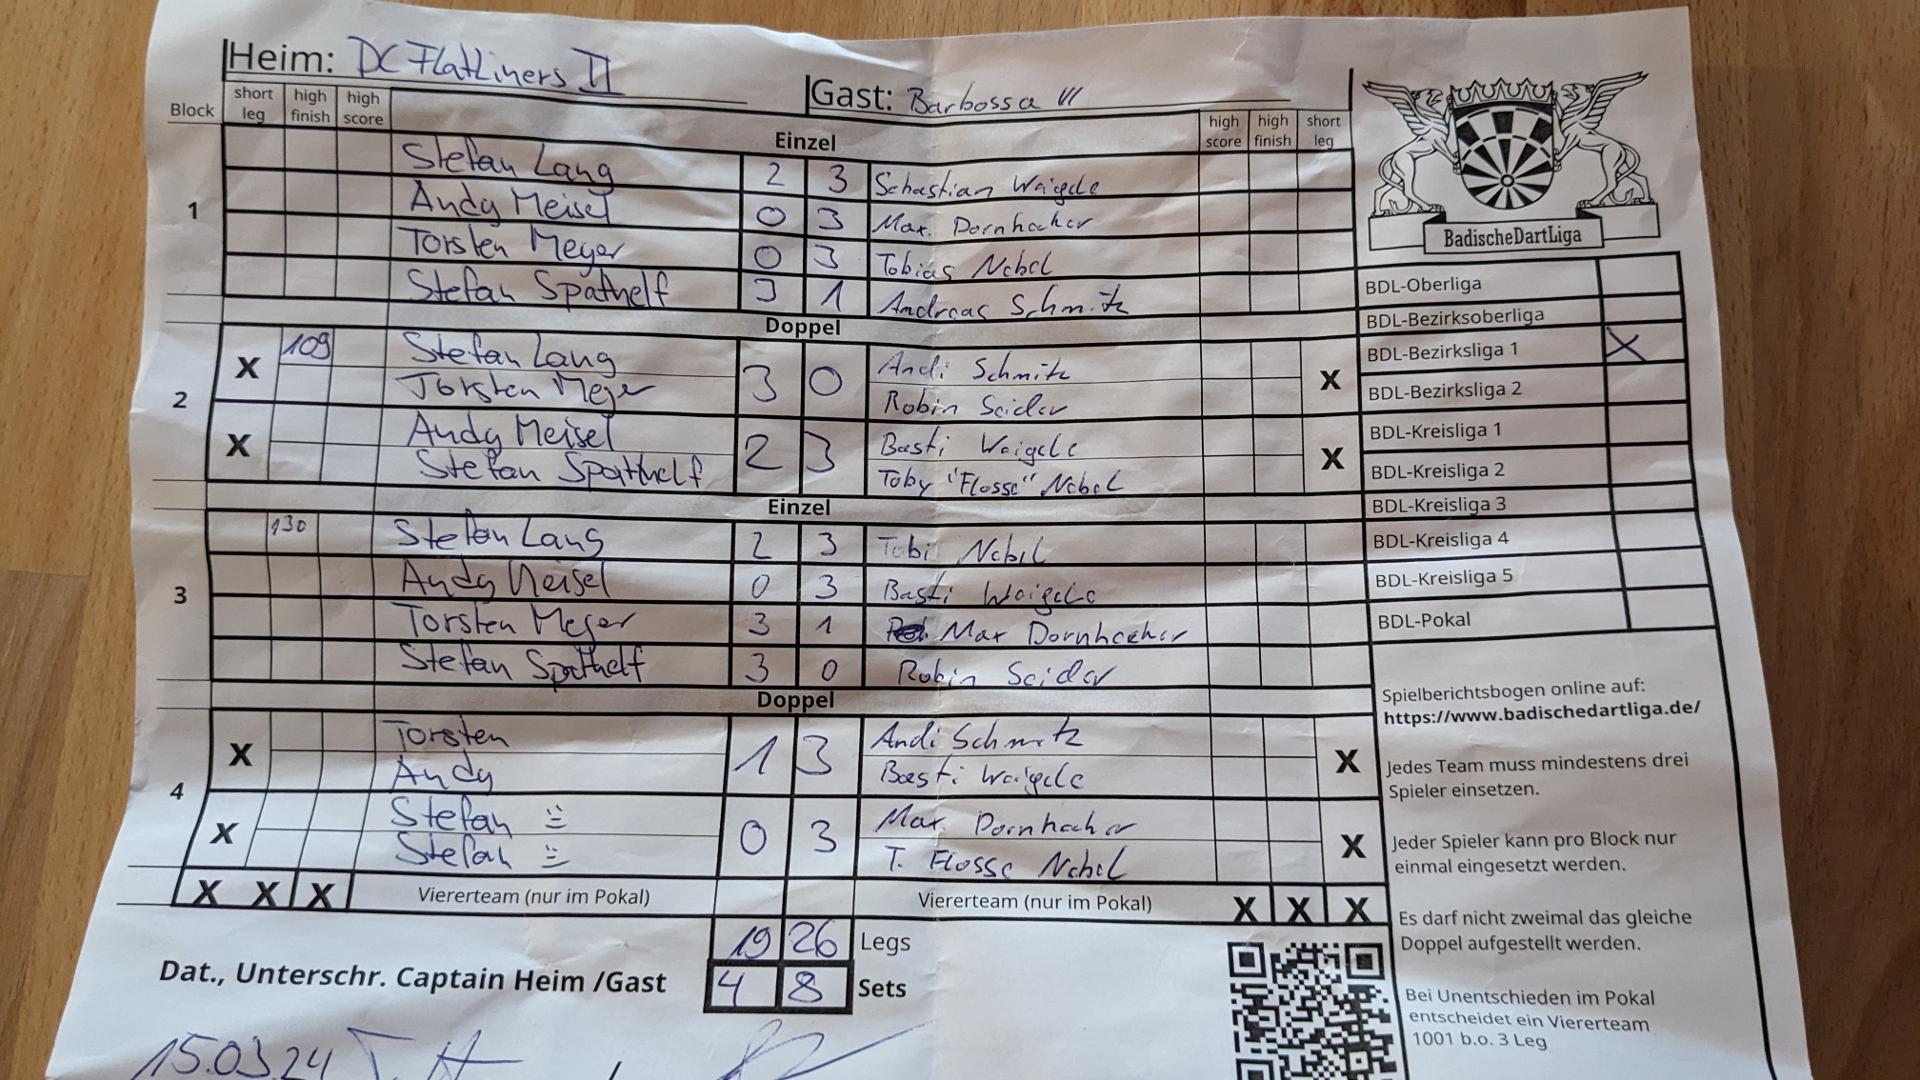 Heim: DC Flatliners II
Gast: Barbossa VI
Block short leg high finish high score
high score high finish short leg
Einzel
1
Stefan Lang 2 3 Sebastian Waigele
Andy Meisel 0 3 Max. Dornhecker
Torsten Meyer 0 3 Tobias Nebel
Stefan Spathelf 3 1 Andreas Schmitz
Doppel
2
X 109 Stefan Lang 3 0 Andi Schmitz X
Torsten Meyer Robin Seider
X Andy Meisel 2 3 Basti Waigele X
Stefan Spathelf Toby "Flosse" Nebel
Einzel
3
130 Stefan Lang 2 3 Tobi Nebel
Andy Meisel 0 3 Basti Waigele
Torsten Meyer 3 1 Max Dornhecker
Stefan Spathelf 3 0 Robin Seider
Doppel
4
X Torsten 1 3 Andi Schmitz X
Andy Basti Waigele
X Stefan 0 3 Max. Dornhecker X
Stefan T. Flosse Nebel
X X X Vierer­team (nur im Pokal) Viererteam (nur im Pokal) X X X
19 26 Legs
4 8 Sets
Dat., Unterschr. Captain Heim /Gast
15.03.24 /
BadischeDartLiga
BDL-Oberliga
BDL-Bezirksoberliga
BDL-Bezirksliga 1 X
BDL-Bezirksliga 2
BDL-Kreisliga 1
BDL-Kreisliga 2
BDL-Kreisliga 3
BDL-Kreisliga 4
BDL-Kreisliga 5
BDL-Pokal
Spielberichtsbogen online auf:
https://www.badischedartliga.de/
Jedes Team muss mindestens drei
Spieler einsetzen.
Jeder Spieler kann pro Block nur
einmal eingesetzt werden.
Es darf nicht zweimal das gleiche
Doppel aufgestellt werden.
Bei Unentschieden im Pokal
entscheidet ein Viererteam
1001 b.o. 3 Leg